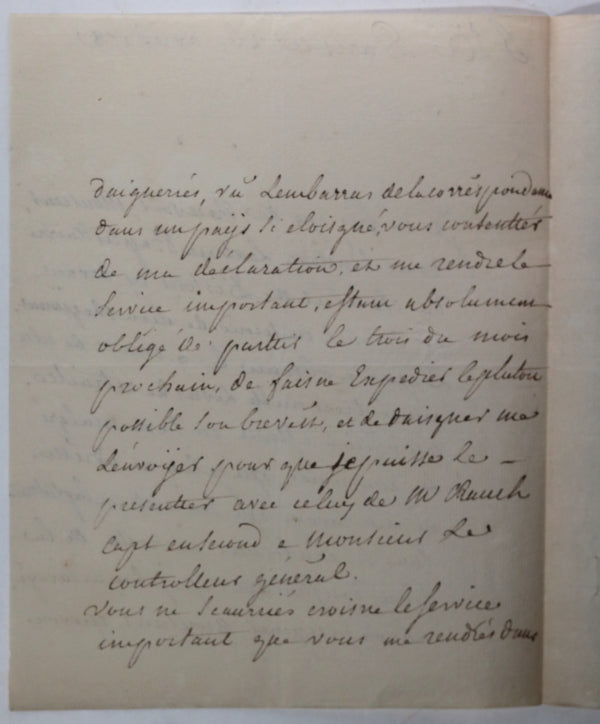 daigneriés, vû Lembarras de la corréspondance
dans un païjs Si eloisgné, vous contentiér
de ma déclaration, et me rendre le
Service important, estant absolument
obligé de partir le trois du mois
prochain, de faisre Expedier leplutôn
possible son brevêt, et de daisgner me
Lénvoÿer pour que je puisse le
presenter avec celuy de Mr Rauch
Capt en second à Monsieur Le
controlleur général.
vous ne Scauriés croisre le Service
important que vous me rendrés dans